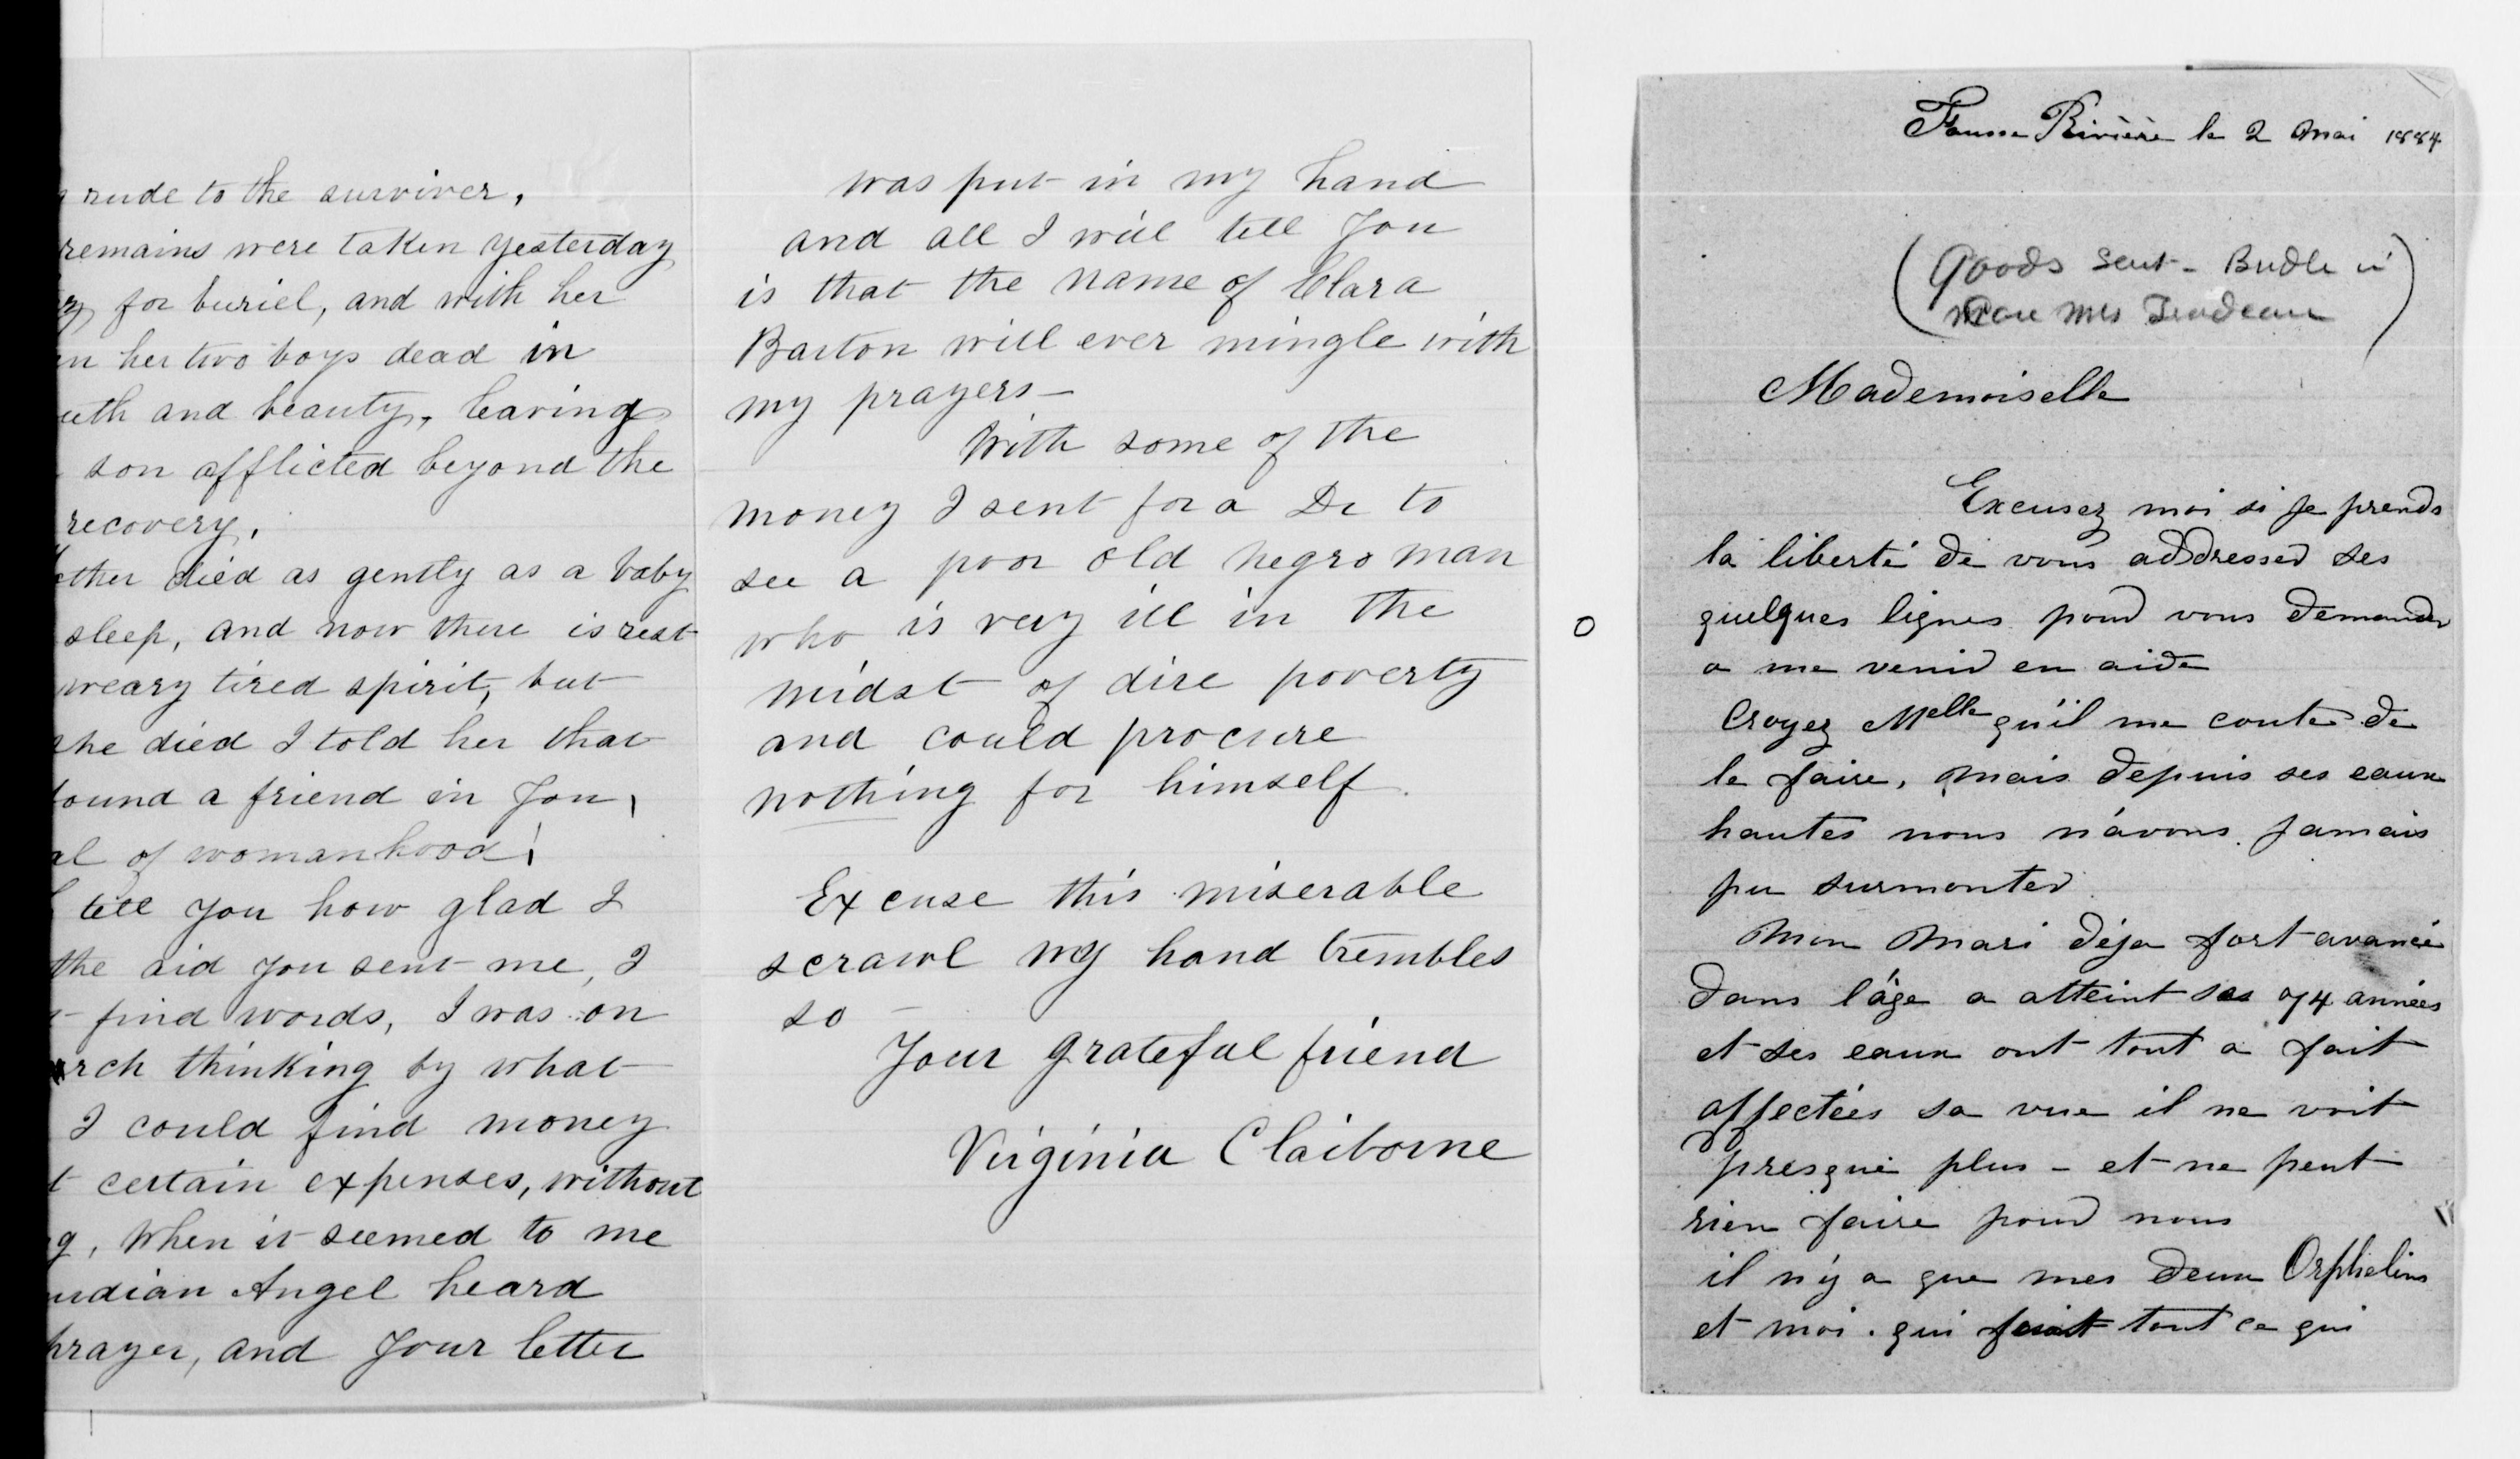 rude to the surviver,
remains were taken yesterday
for buriel, and with her
her two boys dead in
uth and beauty, leaving
son afflicted beyond the
recovery.
other died as gently as a baby
sleep, and now there is rest
weary tired spirit, but
she died I told her that
found a friend in you,
al of womanhood!
tell you how glad I
the aid you sent me, I
find words, I was on
rch thinking by what
I could find money
t certain expenses, without
g, When it seemed to me
rdian Angel heard
prayer, and your letter
was put in my hand
and all I will tell you
is that the name of Clara
Barton will ever mingle with
my prayers—
With some of the
money I sent for a Dr to
see a poor old negro man
who is very ill in the
midst of dire poverty
and could procure
nothing for himself.
Excuse this miserable
scrawl my hand trembles
so —
Your grateful friend
Virginia Claiborne
Fausse Rivière le 2 Mai 1884
(Goods sent - Budle in
care Mrs Trudeau)
Mademoiselle
Excusez moi si je prends
la liberté de vous addresser ses
quelques lignes pour vous demander
a me venir en aide
Croyez Melle qu'il me coute de
le faire, Mais depuis ses eaux
hautes nous n'avons jamais
pu surmonter
Mon Mari déja fort avancé
dans l'âge a atteint ses 74 années
et ses eaux ont tout a fait
affectées sa vue il ne voit
presque plus - et ne peut
rien faire pour nous
il n'y a que mes deux Orphelins
et moi. qui fait tout ce qui